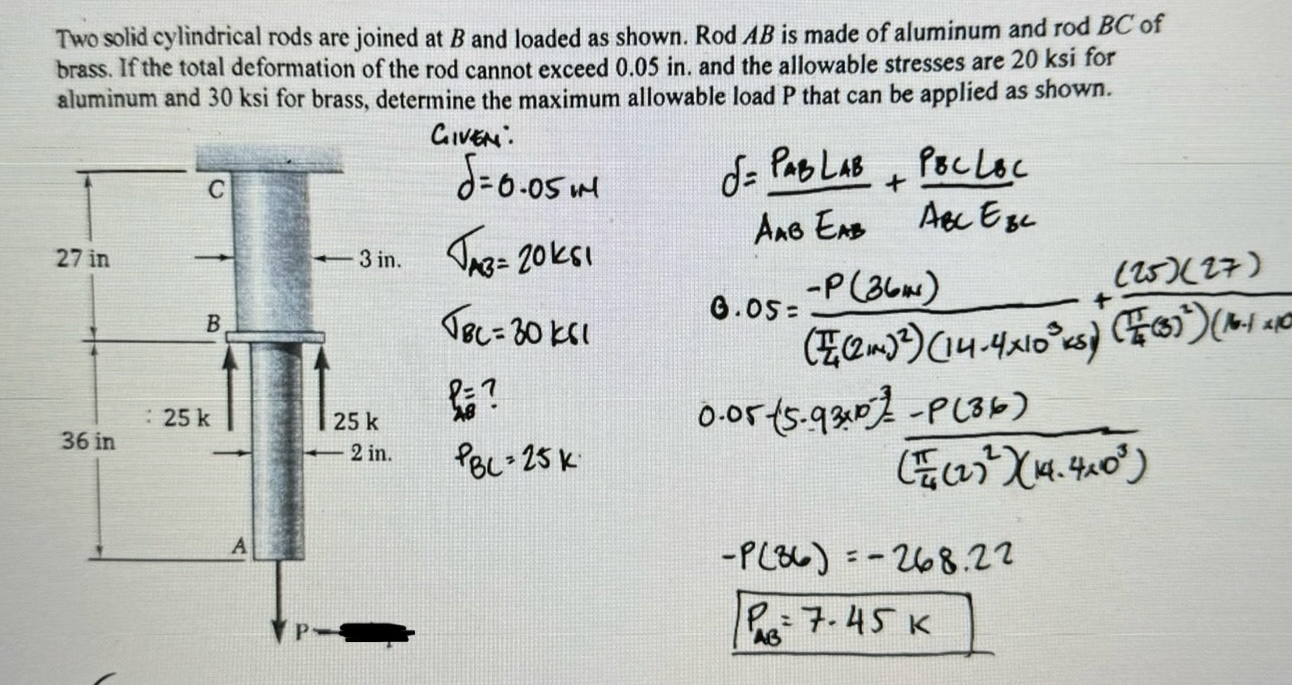 Two solid cylindrical rods are joined at B and loaded as shown. Rod AB is made of aluminum and rod BC of
brass. If the total deformation of the rod cannot exceed 0.05 in. and the allowable stresses are 20 ksi for
aluminum and 30 ksi for brass, determine the maximum allowable load P that can be applied as shown.
GIVEN:
δ=0.05 IN
σAB= 20 KSI
σBC= 30 KSI
PAB=?
PBC= 25 K
C
27 in
3 in.
B
: 25 k
25 k
36 in
2 in.
A
P
δ= PAB LAB / AAB EAB + PBC LBC / ABC EBC
0.05= -P(36IN) / (π/4(2IN)²)(14.4x10³ KSI) + (25)(27) / (π/4(3)²)(16.1 x10
0.05-(5.93x10⁻³)= -P(36) / (π/4(2)²)(14.4x10³)
-P(36) = -268.22
PAB= 7.45 K